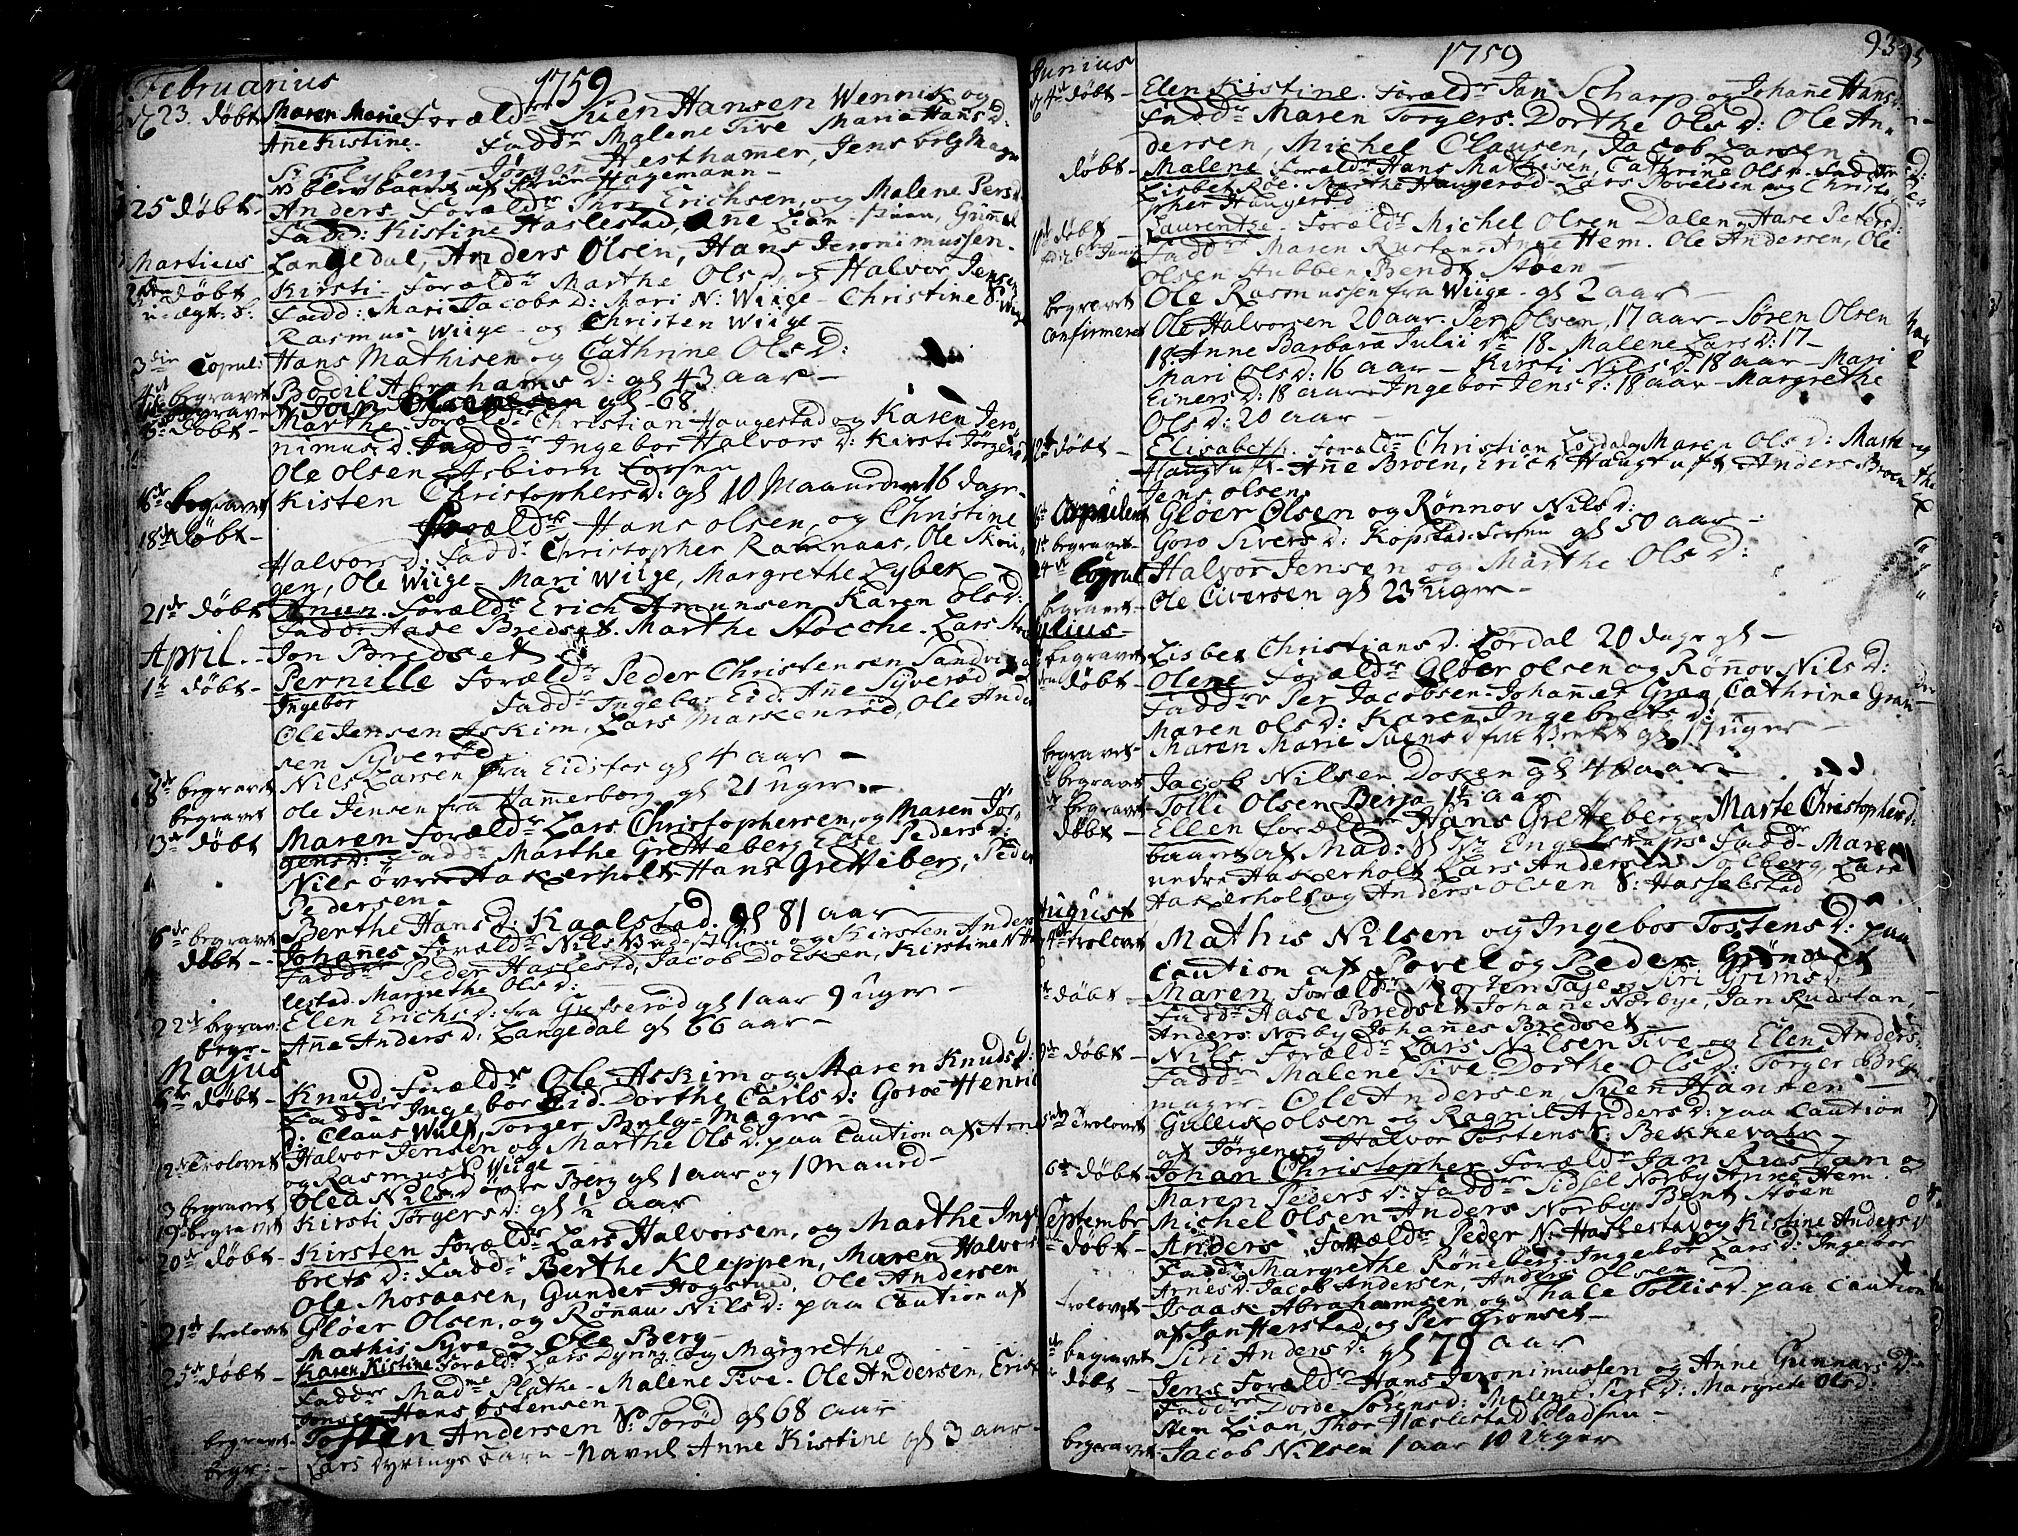 Februarius 1759
d. 23. døbt Maren Marie Forældr Suen Hansen Wennik og
Anne Kistine. Faddr Malene Tive Maria Hans D:
S: Flyberg Jørgen Hesthammer, Jens belgMager
blev baaret af Hagemann
25 døbt Anders Forældr Thor Erichsen, og Malene Pers D
Fadd: Kistine Haslestad, Ane
Langedal, Anders Olsen, Hans Jeronimussen
Martius
døbt Kirsti Forældr Marthe Ols D: og Halvor Jensen
Fadd: Mari Jacobs D: Mari N: Wiige Christine S: Wiige
Rasmus Wiige og Christen Wiige
3die Copul: Hans Mathisen og Cathrine Ols D:
begravet Bodil Abrahams D: gl 43 aar
begravet gl 68
døbt Marthe Foræld: Christian Haugestad og Karen Jero
nimus D. Faddr Ingebor Halvors D: Kirsti Jørgens
Ole Olsen Asbiørn Larsen
begravet Kisten Christophers D: gl 10 Maaneder 16 dage
18de døbt Forældr Hans olsen, og Christine
Halvors D: Faddr Christopher Ramnaas, Ole Skou
gen, Ole Wiige Mari Wiige, Margrethe Lybek
21de døbt Anun Forældr Erich Amunsen Karen Ols D:
Fadd: Aase Bredset. Marthe Stocche. Lars
April. Jon Bredset
1te døbt Pernille Forældr Peder Christensen Sandvig
Ingebor Faddr Ingebor Eid. Anne Syverød
Ole Jensen Askim, Lars Markenrød, Ole Ander
sen Syverød
8de begravet Nils Larsen fra Eidsfos gl 4 aar
begravet Ole Jensen fra Hammerborg gl 21 uger
13de døbt Maren Forældr Lars Christophersen, og Maren Jør
gens D: Faddr Marthe Gretteberg Else Peders D:
Nils øvre Haxerholt Hans Gretteberg, Peder
Pedersen
begravet Berthe Hans D: Kaalstad. gl 81 aar
døbt Johannes Forældr Nils og Kirsten Anders
Faddr Peder Haslestad, Jacob Doksen, Kirstine N Has
lestad Margrethe Ols D:
22de begrav: Elen Erichs D: fra Gusserød gl 1 aar 9 uger
begr Anne Anders D. Langedal gl 66 aar
Majus
døbt Knud Forældr Ole Askim og Maren Knuds D:
Faddr Ingebor Eid Dorthe Carls D: Goroe Henric
D: Claus Wulf, Torger Belg Mager
Trolovet Halvor Jensen og Marthe Ols D: paa Caution af Arne
og Rasmus Wiige
3 begravet Olea Nils D øvre Berg gl 1 aar og 1 Maaned
19de begravet Kirsti Torgers D: gl ½ aar
20de døbt Kirsten Forældr Lars Halvorsen, og Marthe Inge
brets D: Faddr Berthe Kleppen, Maren Halvors
Ole Mosaasen, Gunder Hogstved, Ole Andersen
21de trolovet Gløer Olsen, og Rønau Nils D: paa Caution af
Mathis Syve og Ole Berg
25de døbt Karen Kistine Foræld: Lars Dyring Og Margrethe
Faddr Madme Plathe Malene Tive Ole Andersen, Erich
Jonsen Hans Ostensen
begravet Tosten Andersen N: Torød gl 68 aar
begr: Lars Dyrings Barn Navnl Anne Kistine gl 3 aar
Junius 1759 93
døbt Elen Kistine. Forældr Jan Scharp og Johanne Hans D:
Faddr Maren Torgers: Dorthe Ols D: Ole An
dersen, Michel Clausen, Jacob Larsen
døbt Malene Forældr Hans Mathisen, Cathrine Ols D Faddr
Lisbet Røe. Marthe Haugerød Lars Povelsen og Christo
pher Haugerød
døbt Laurentze Forældr Michel Olsen Dalen Aase Peters D
Faddr Maren Rustan Anne Hem. Ole Andersen, Ole
Olsen Stubben Bendt Støen
begravet Ole Rasmussen fra Wiige gl 2 aar
Confirmeret Ole Halvorsen 20 aar. Per Olsen, 17 aar Søren Olsen
18. Anne Barbara Julii Dr 18 Malene Lars D: 17
Mari Ols D: 16 aar Kirsti Nils D: 18 aar Mari
Einers D: 18 aar Ingebor Jens D: 18 aar Margrethe
Ols D: 20 aar
døbt Elisabeth. Forældr Christian Lørdal og Maren Ols D: Marthe
Haugtuft Ane Broen, Erich Haugtuft Anders Broen
Jens olsen
Copuleret Gløer Olsen og Rønnov Nils D:
begravet Goro Sivers D: Kopstad gl 50 aar
Copul Halvor Jensen og Marthe Ols D:
begravet Ole Civersen gl 23 Uger
Julius
begravet Lisbet Christians D. Lørdal 20 dage gl
døbt Olene Forældr Gløer Olsen og Rønnov Nils D:
Faddr Per Jacobsen Johannes Gran Cathrine Gran
Maren Ols D: Karen Ingebrets D:
begravet Maren Marie Suens D fra gl 17 uger
begravet Jacob Nilsen Doxen gl 4 aar
begravet Tolli Olsen Berja 1½ aar
døbt Ellen Forældr Hans Gretteberg og Marte Christophers D:
baaret af Mad: Engelskøfs Faddr Maren
nedre Haxerholt Lars Andersen Solberg Lars
Haxerholt og Anders Olsen S: Hasselstad
August
trolovet Mathis Nilsen og Ingebor Tostens D: paa
Caution af Povel og Peder Grønset
døbt Maren Forældr Morten Taje og Siri Grims D:
Faddr Aase Bredset Johane Nørbye, Jan Rustan,
Anders Norby Johannes Bredset
døbt Nils Forældr Lars Nilsen Tive og Elen Anders:
Faddr Malene Tive Dorthe Ols D: Torger Belg
mager Ole Andersen Suen Hansen
Trolovet Gulleik olsen og Ragnil Anders D: paa Caution
af Jørgen og Halvor Tostens S: Bekkevahr
6te døbt Johan Christopher Forældr Jan Rustan og
Maren Peders D: Faddr Sidsel Norby Anne Hem.
Michel Olsen Anders Norby Bent Støen
Septembr
døbt Anders Forældr Peder N: Haslestad og Kistine Anders D
Faddr Margrethe Rønneberg Ingebor Lars D: Ingebor
Arnes D: Jacob Andersen, Anders Olsen
trolovet Isaak Abrahamsen og Thale Tollis D. paa Caution
af Jan Herstad og Per Grønset
begravet Siri Anders D: gl 79 aar
døbt Jens Forældr Hans Jeronimussen og Anne Gunnars D:
Faddr Dorde Sørens D: Malene Pers D: Margrete Ols D:
Sten Lian, Thor Haslestad
begravet Jacob Nilsen 1 aar 10 Uger